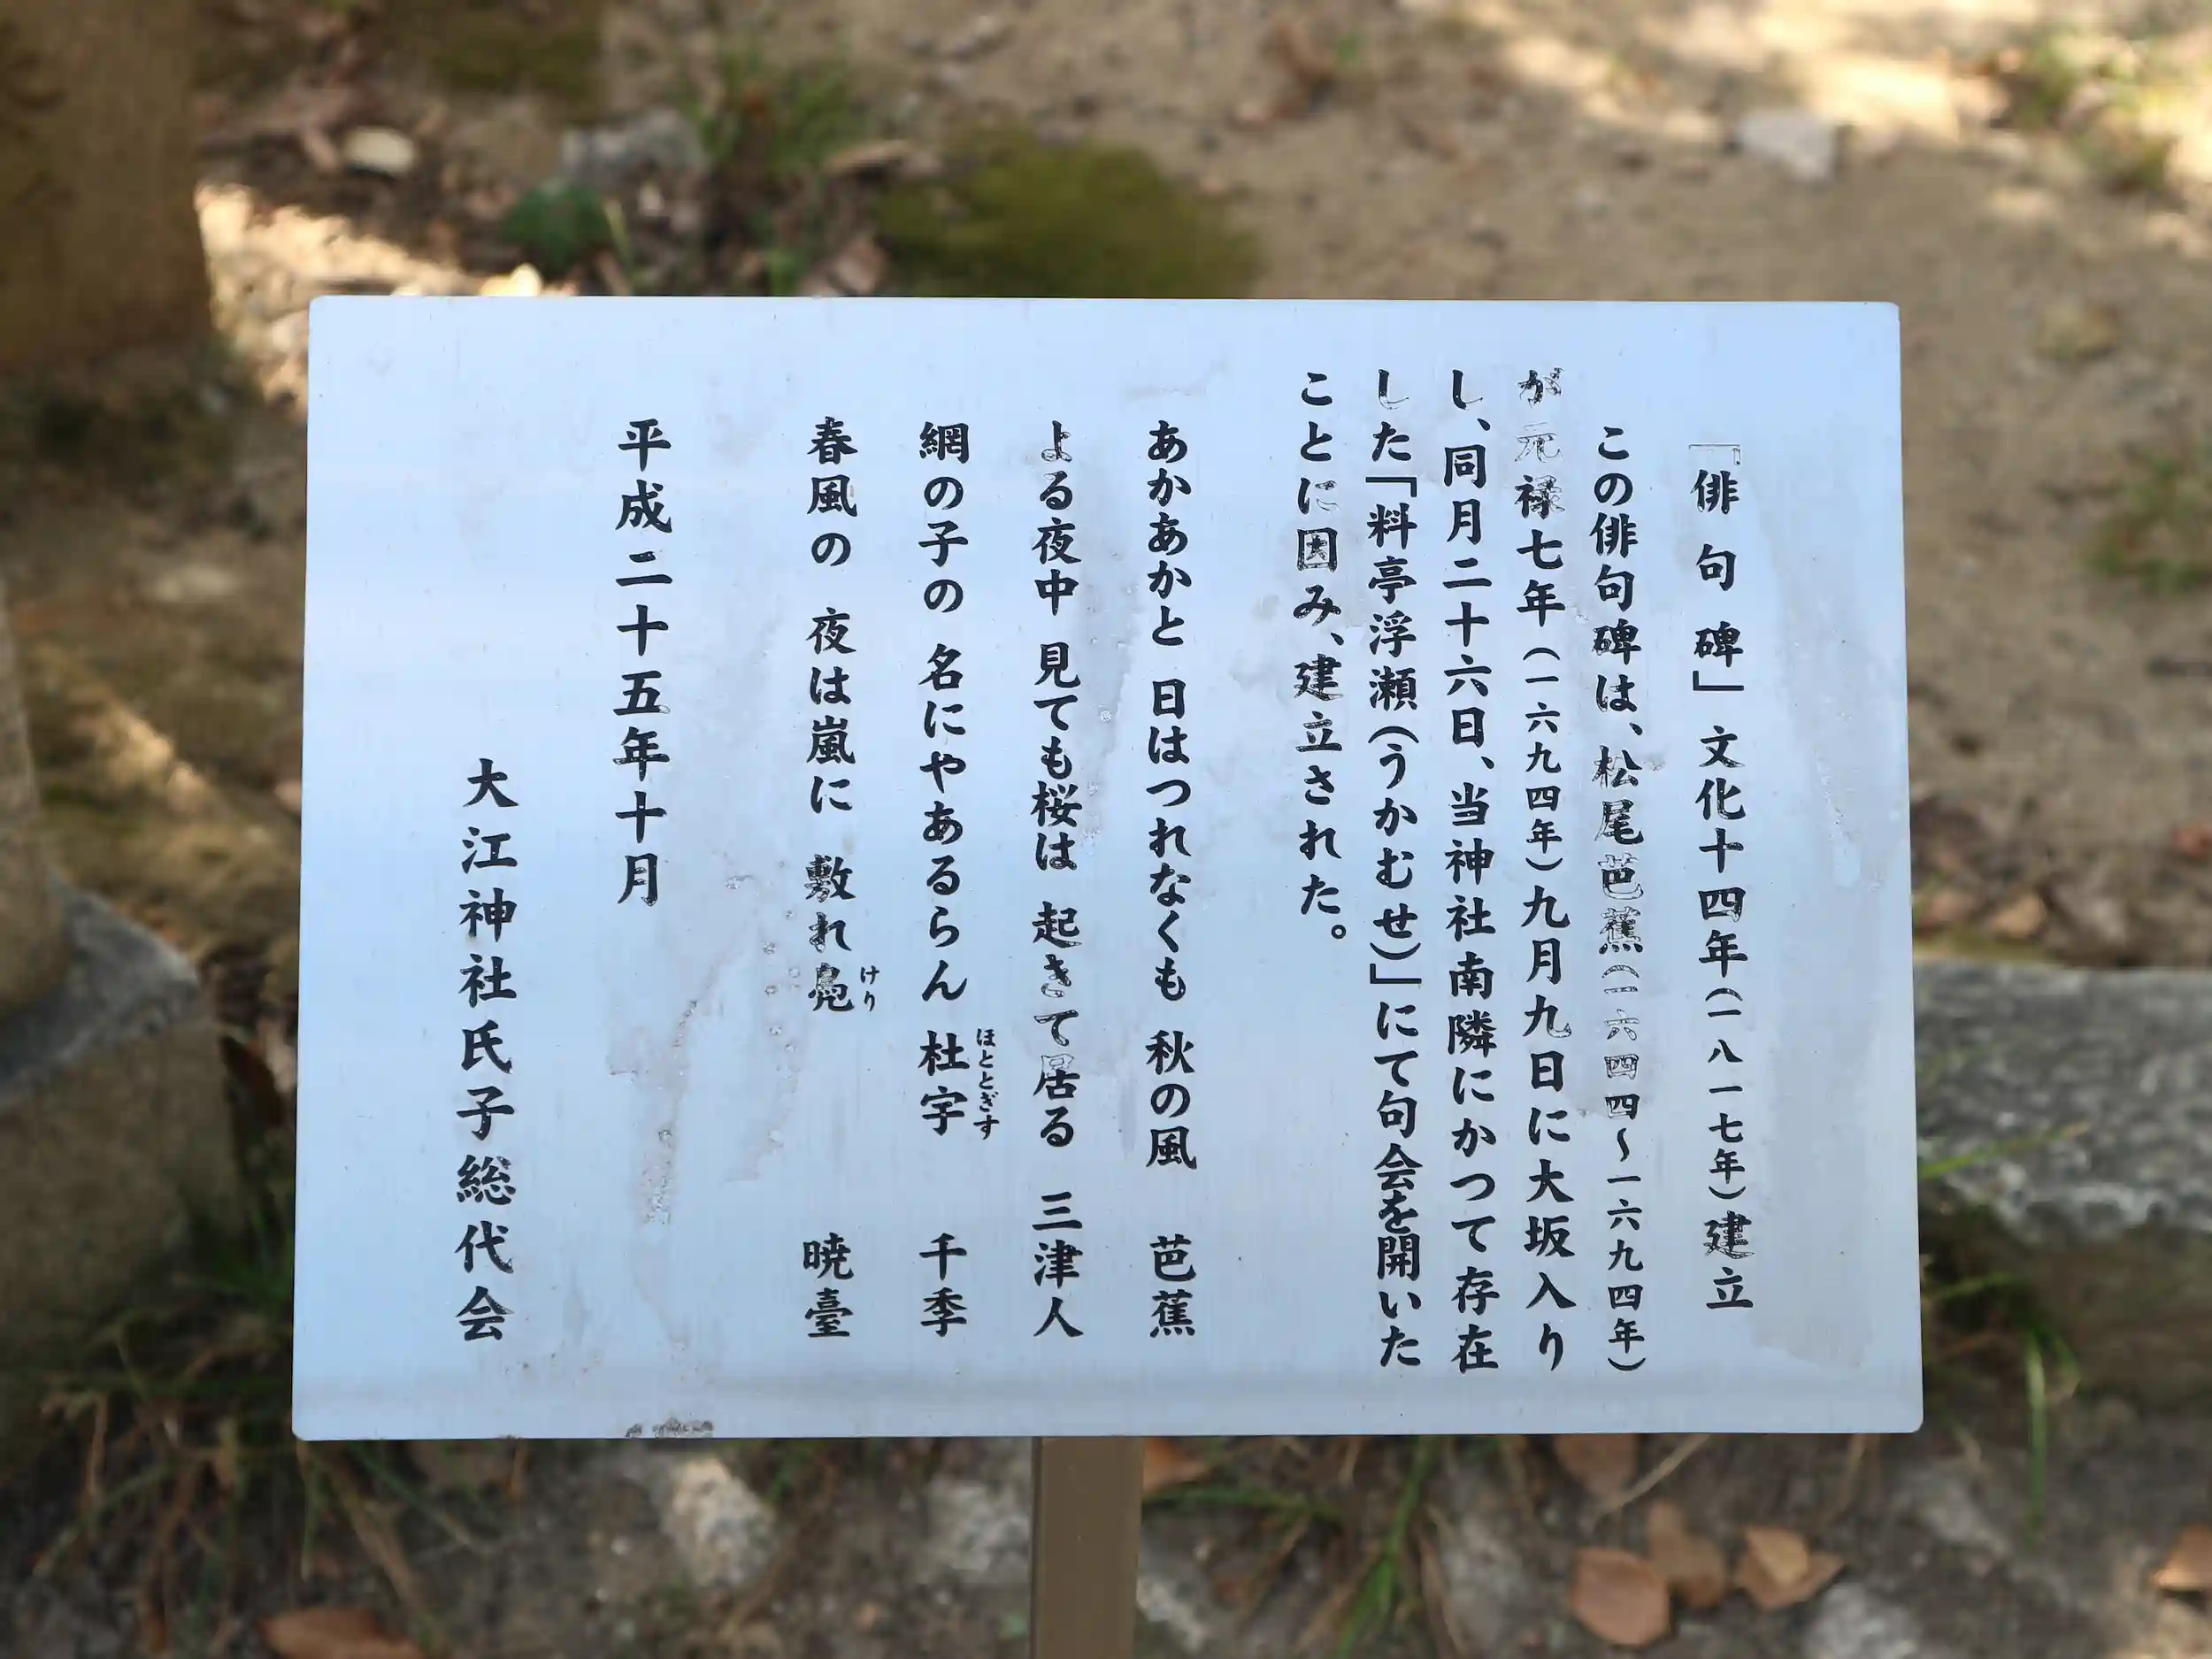 「俳句碑」文化十四年(一八一七年)建立
この俳句碑は、松尾芭蕉(一六四四〜一六九四年)
が元禄七年(一六九四年)九月九日に大坂入り
し、同月二十六日、当神社南隣にかつて存在
した「料亭浮瀬(うかむせ)」にて句会を開いた
ことに因み、建立された。
あかあかと 日はつれなくも 秋の風 芭蕉
よる夜中 見ても桜は 起きて居る 三津人
網の子の 名にやあるらん 杜宇 千季
ほととぎす
春風の 夜は嵐に 敷れ鳧 暁臺
けり
平成二十五年十月
大江神社氏子総代会